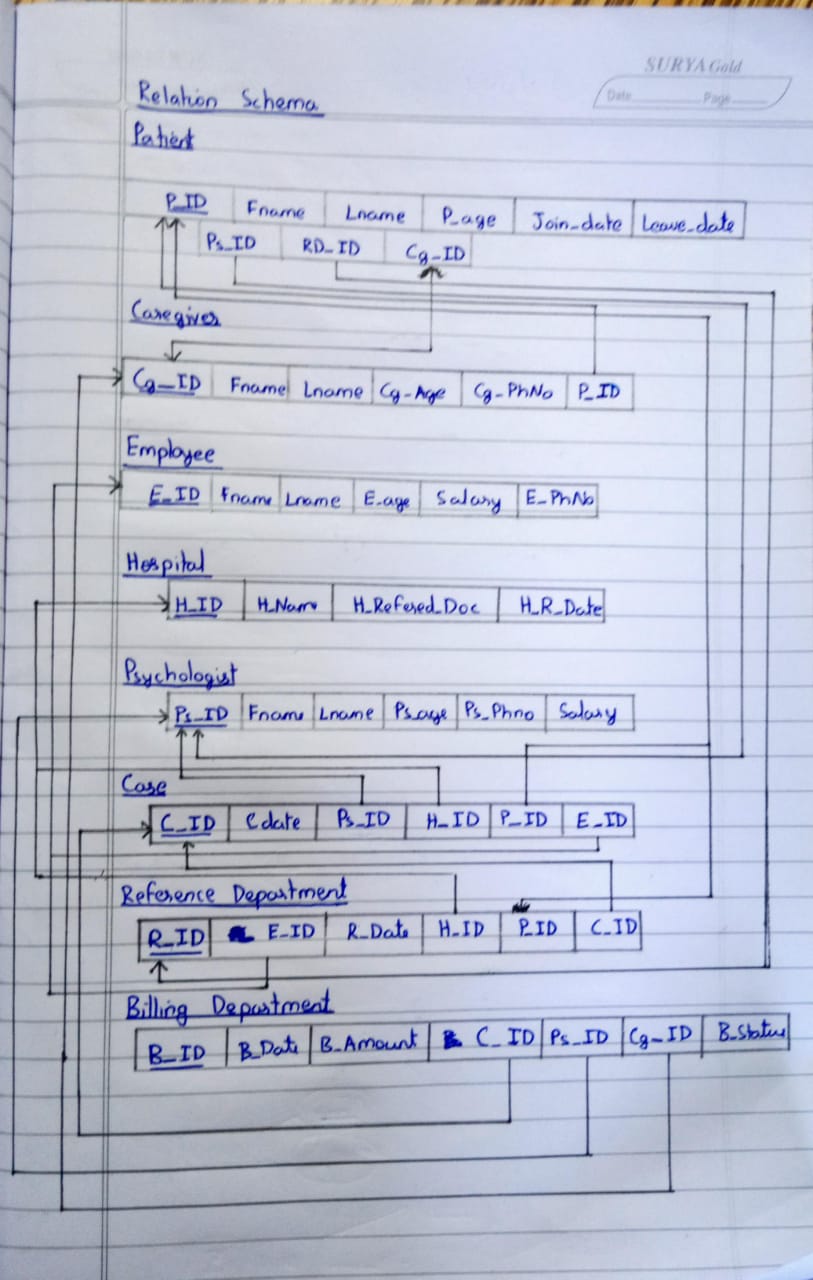 SURYA Gold
Date Page
Relation Schema
Patient
P_ID Fname Lname P_age Join_date Leave_date
Ps_ID RD_ID Cg_ID
Caregiver
Cg_ID Fname Lname Cg-Age Cg-PhNo P_ID
Employee
E_ID Fname Lname E-age Salary E_PhNo
Hospital
H_ID H_Name H_Refered_Doc H_R_Date
Psychologist
Ps_ID Fname Lname Ps_age Ps_Phno Salary
Case
C_ID Cdate Ps_ID H_ID P_ID E_ID
Reference Department
R_ID E_ID R_Date H_ID P_ID C_ID
Billing Department
B_ID B_Date B_Amount C_ID Ps_ID Cg_ID B_Status